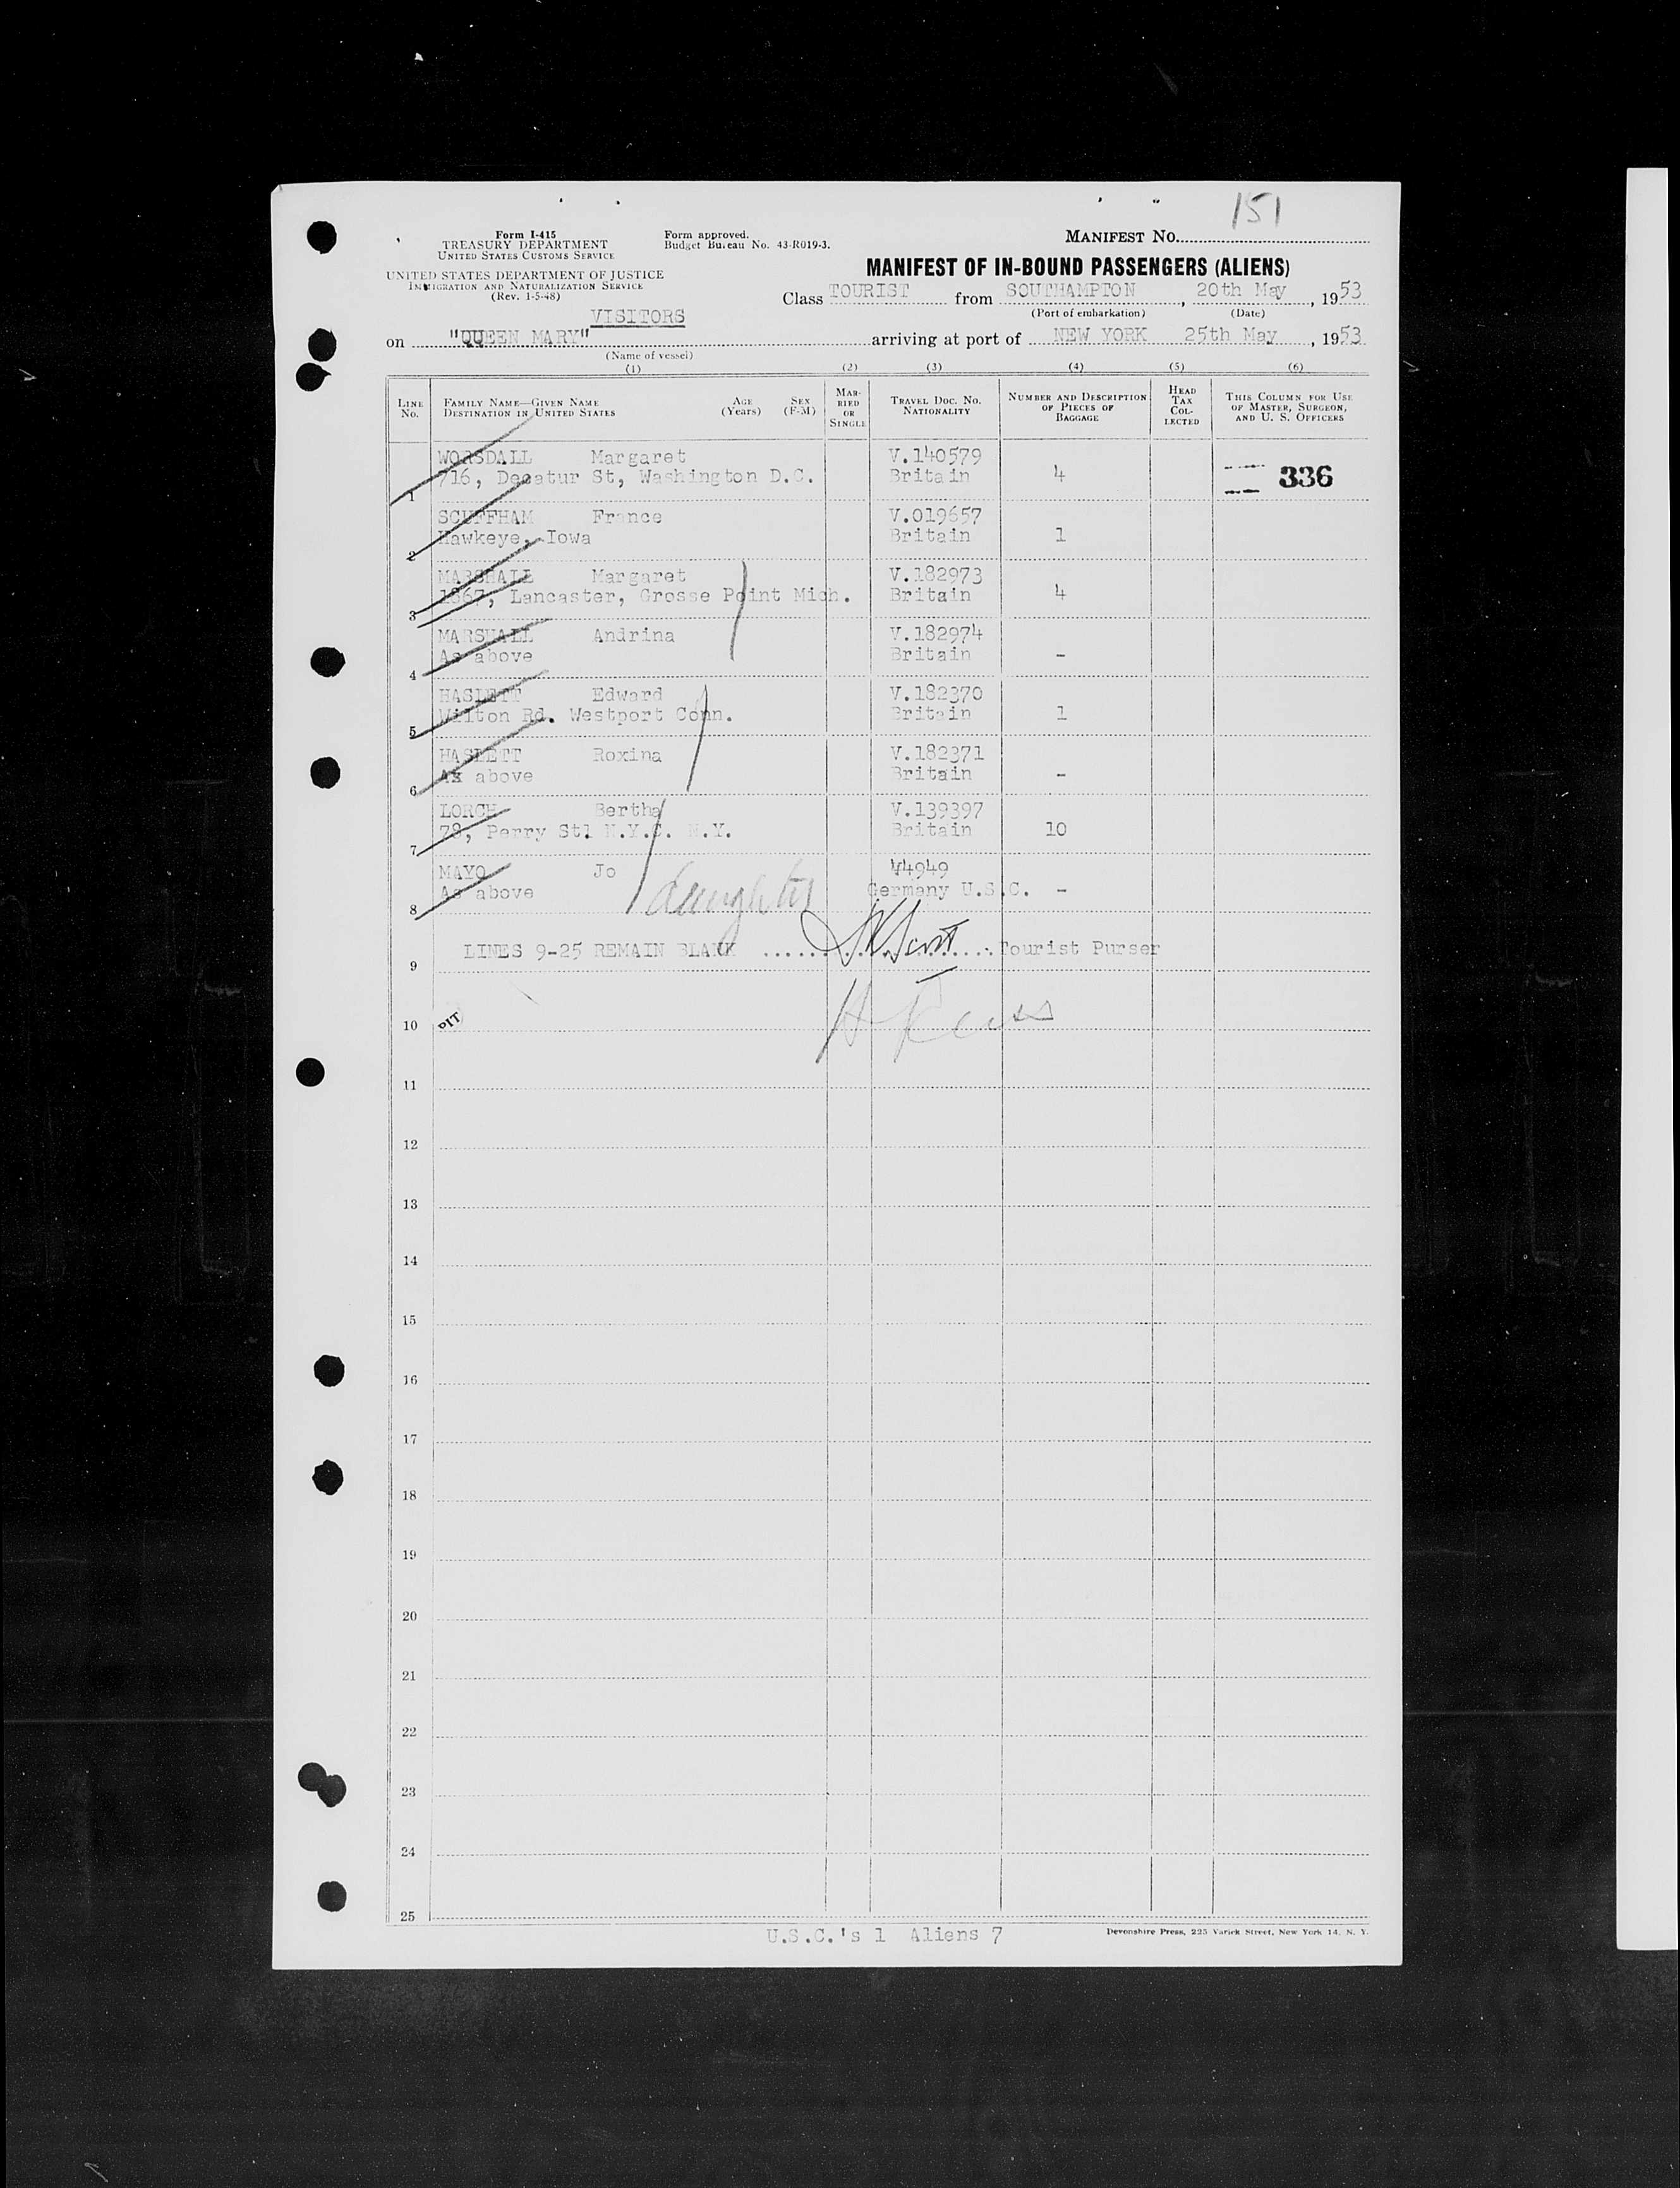 151
Form I-415
TREASURY DEPARTMENT
UNITED STATES CUSTOMS SERVICE
Form approved.
Budget Bureau No. 43-R019-3.
MANIFEST NO.
UNITED STATES DEPARTMENT OF JUSTICE
IMMIGRATION AND NATURALIZATION SERVICE
(Rev. 1-5-48)
MANIFEST OF IN-BOUND PASSENGERS (ALIENS)
Class TOURIST from SOUTHAMPTON, 20th May, 1953
(Port of embarkation) (Date)
VISITORS
on "QUEEN MARY" arriving at port of NEW YORK 25th May, 1953
(Name of vessel)
(1) (2) (3) (4) (5) (6)
LINE No.
FAMILY NAME—GIVEN NAME
DESTINATION IN UNITED STATES
AGE (Years)
SEX (F-M)
MARRIED OR SINGLE
TRAVEL DOC. NO. NATIONALITY
NUMBER AND DESCRIPTION OF PIECES OF BAGGAGE
HEAD TAX COLLECTED
THIS COLUMN FOR USE OF MASTER, SURGEON, AND U. S. OFFICERS
WORSDALL Margaret V.140579
1 716, Decatur St, Washington D.C. Britain 4 336
SCUFFHAM France V.019657
2 Hawkeye, Iowa Britain 1
MARSHALL Margaret V.182973
3 1867, Lancaster, Grosse Point Mich. Britain 4
MARSHALL Andrina V.182974
4 As above Britain -
HASLETT Edward V.182370
5 Wilton Rd. Westport Conn. Britain 1
HASLETT Roxina V.182371
6 As above Britain -
LORCH Bertha V.139397
7 78, Perry Stl N.Y.C. N.Y. Britain 10
MAYO Jo V4949
8 As above daughter Germany U.S.C. -
9 LINES 9-25 REMAIN BLANK Tourist Purser
10 PIT
11
12
13
14
15
16
17
18
19
20
21
22
23
24
25
U.S.C.'s 1 Aliens 7
Devonshire Press, 225 Varick Street, New York 14, N. Y.